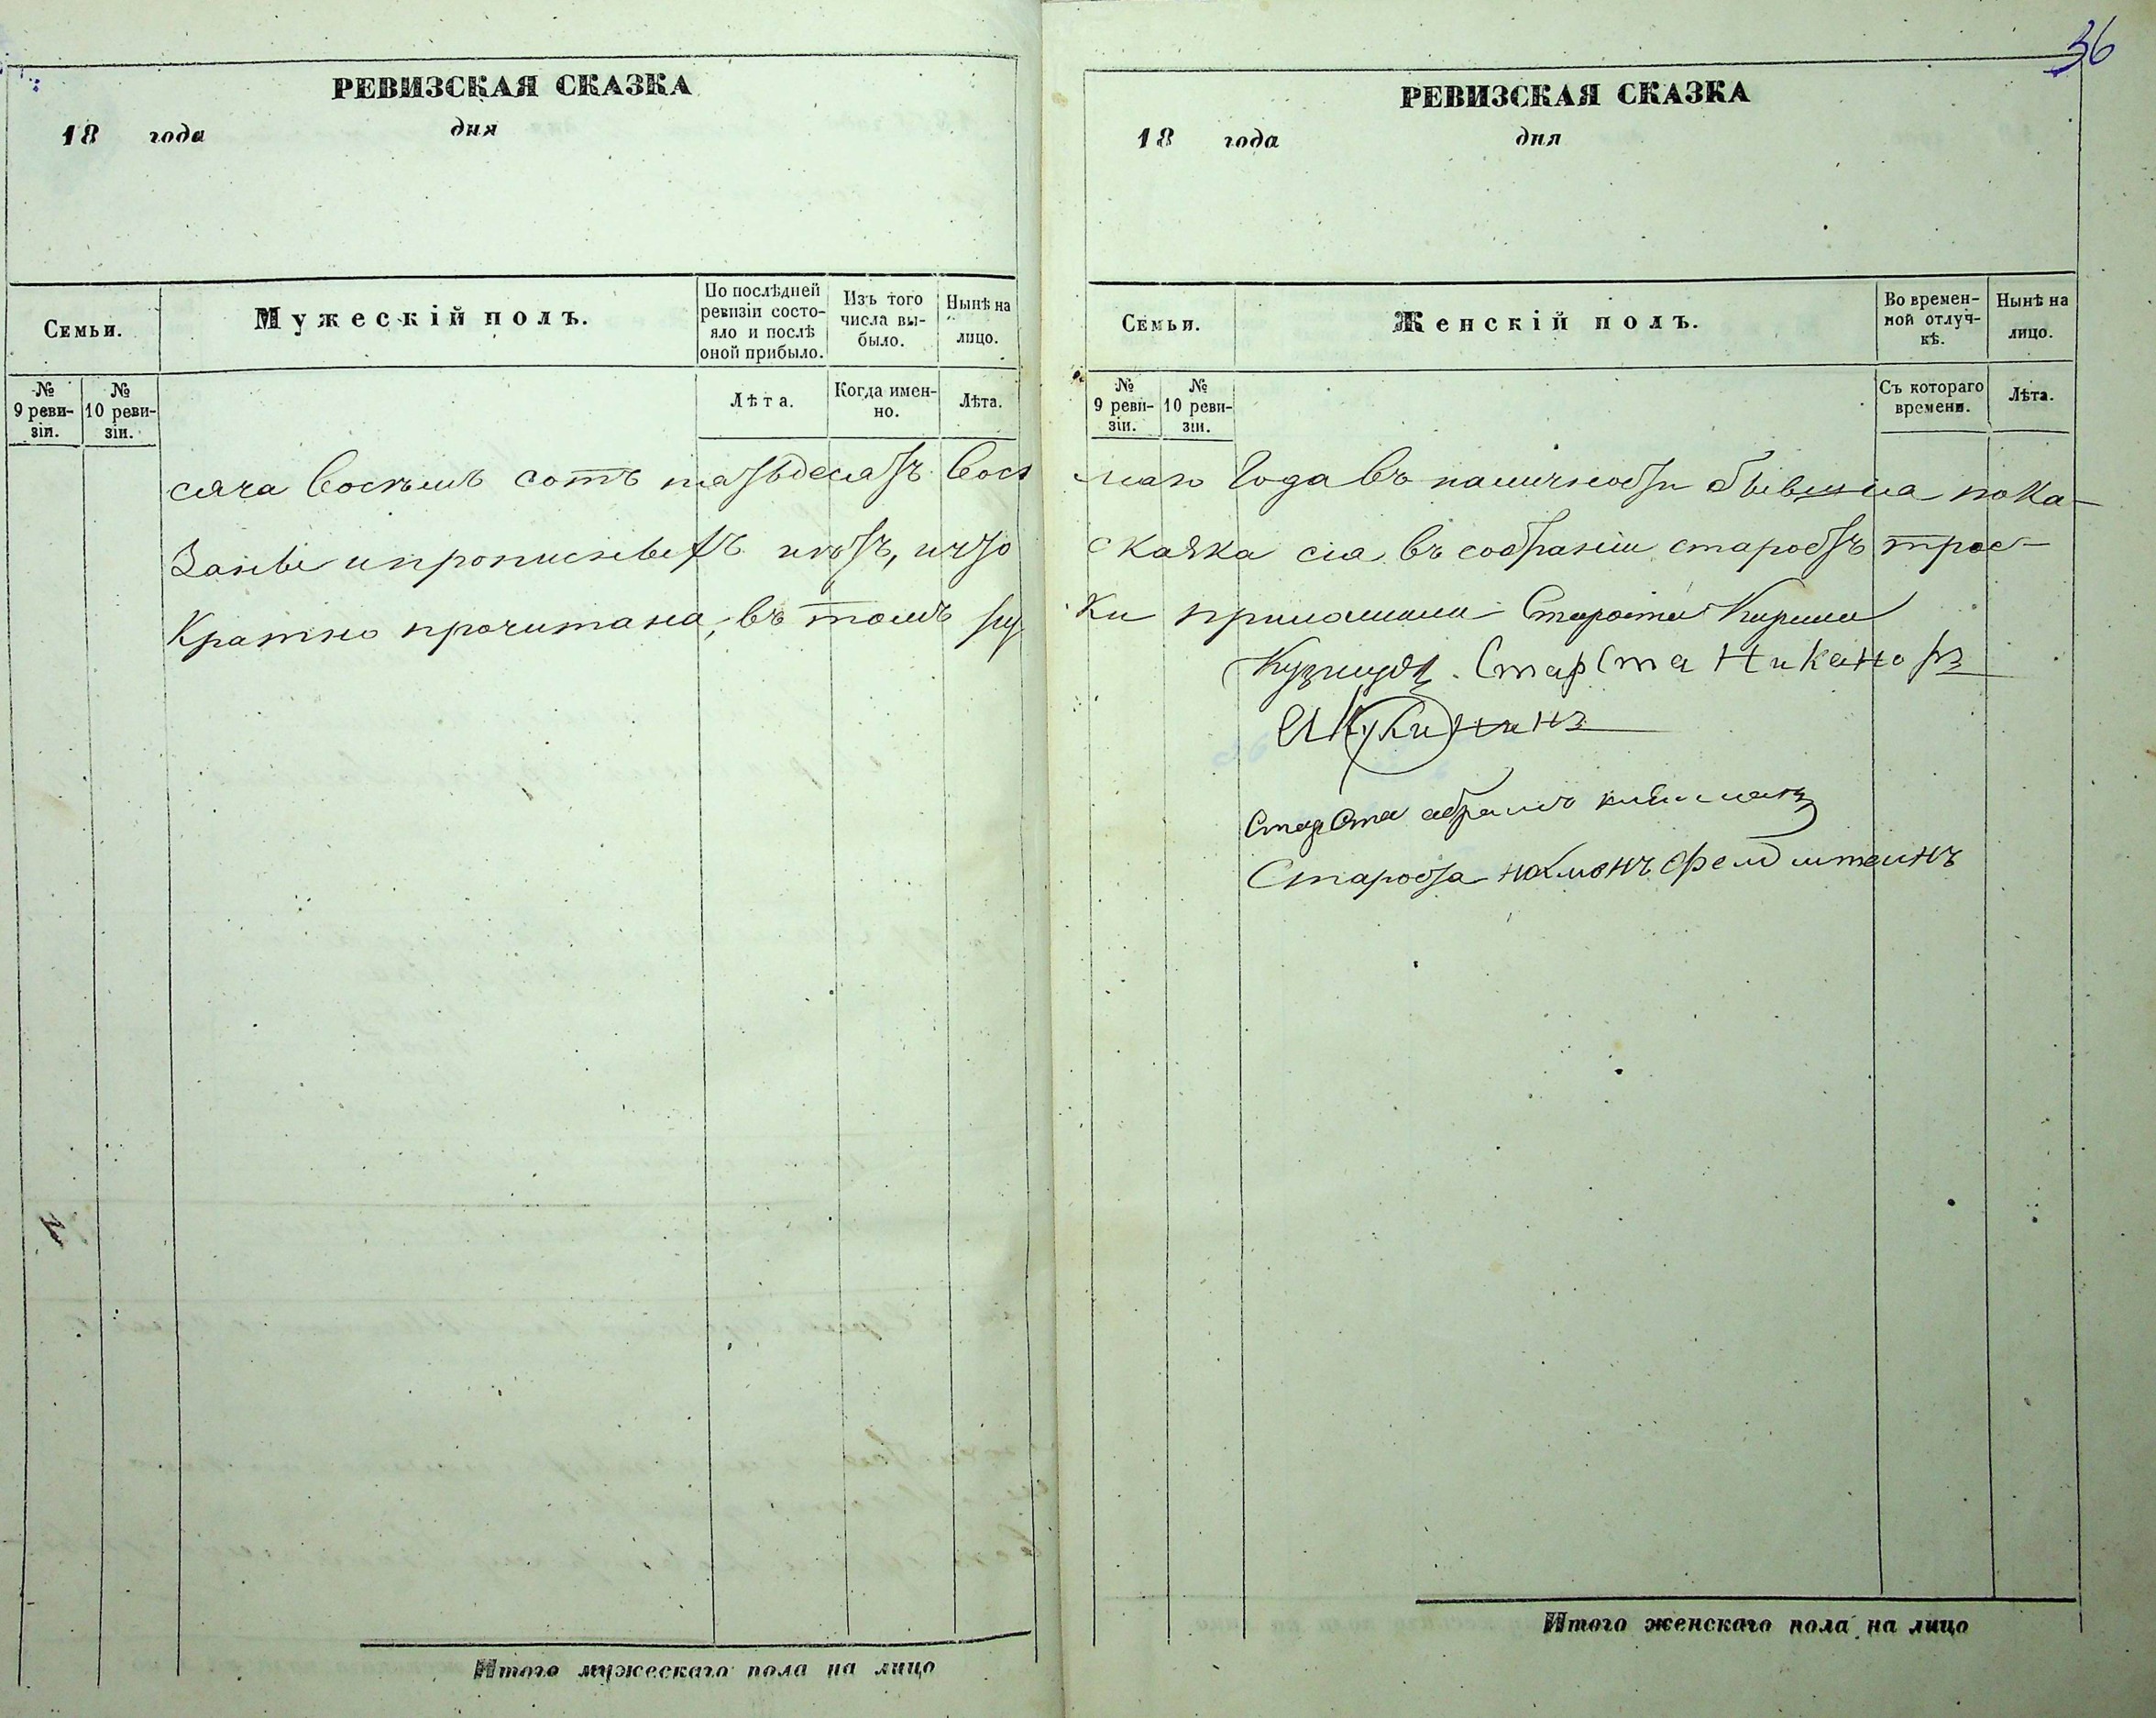 36
РЕВИЗСКАЯ СКАЗКА
18 года дня
Семьи.
Мужескій полъ.
По послѣдней ревизіи состо-
яло и послѣ оной прибыло.
Изъ того числа вы-
было.
Нынѣ на лицо.
№ 9 реви-
зіи.
№ 10 реви-
зіи.
Лѣта.
Когда имен-
но.
Лѣта.
сяча восемь сотъ пятьдесятъ вось
заніе и прописныхъ нѣтъ, и что
кратно прочитана, въ томъ ру
Итого мужескаго пола на лицо
РЕВИЗСКАЯ СКАЗКА
18 года дня
Семьи.
Женскій полъ.
Во времен-
ной отлуч-
кѣ.
Нынѣ на лицо.
№ 9 реви-
зіи.
№ 10 реви-
зіи.
Съ котораго времени.
Лѣта.
маго года въ наличности бывшиа пока-
сказка сіа въ собраніи старостъ трое-
ки приложили Староста Кирила
Кузнецовъ. Старста Никаноръ
Староста абрамъ
Староста нохмонъ Фелдштеинъ
Итого женскаго пола на лицо